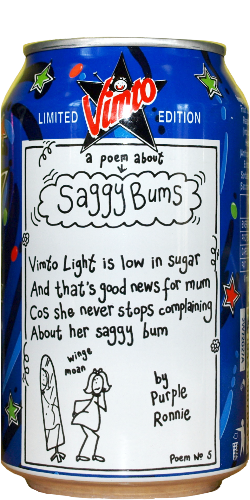 LIMITED Vimto EDITION
a poem about
Saggy Bums
Vimto Light is low in sugar
And that's good news for mum
Cos she never stops complaining
About her saggy bum
winge
moan
by
Purple
Ronnie
Poem No 5